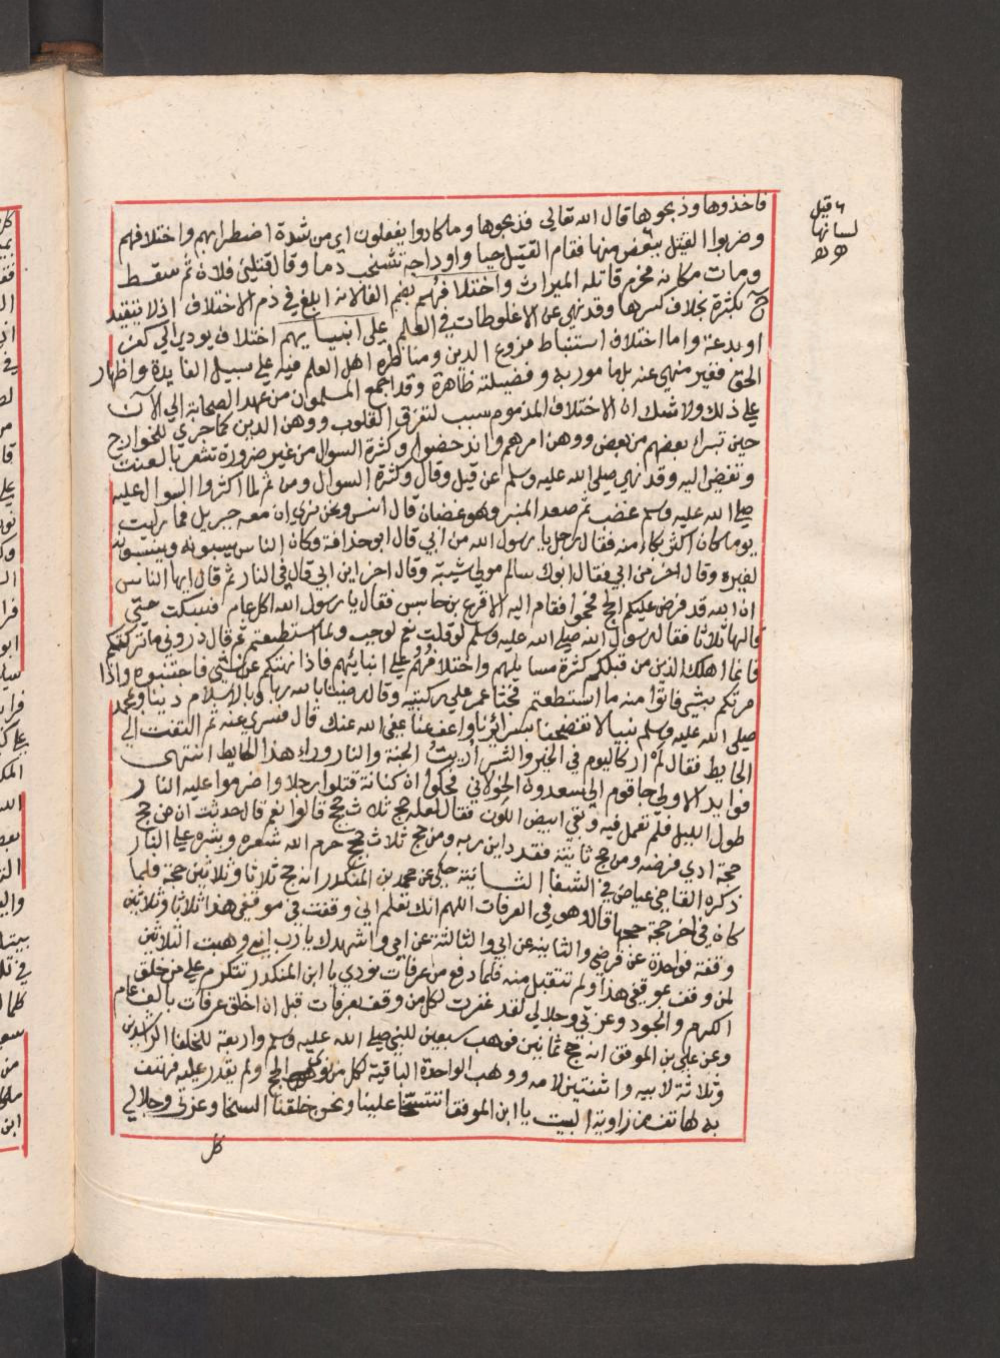 فاخذوها وذبحوها قال الله تعالى فذبحوها وما كادوا يفعلون اي من شدة اضطرابهم واختلافهم
وضربوا القتيل ببعض منها فقام القتيل حيا واوداجه تشخب دما وقال قتلني فلان ثم سقط
ومات مكانه فحرم قاتله الميراث واختلافهم بضم الفا لانه ابلغ في ذم الاختلاف اذ لا يتقيد
ح بكثرة بخلاف كسرها وقد نهي عن الاغلوطات في العلم على انبيايهم اختلاف يودي الى كفر
او بدعة واما اختلاف استنباط فروع الدين ومناظرة اهل العلم فيه على سبيل الفايدة واظهار
الحق فغير منهي عنه بل مامور به وفضيلته ظاهرة وقد اجمع المسلمون من عهد الصحابة الي الآن
علي ذلك ولا شك ان الاختلاف المذموم سبب لتفرق القلوب ووهن الدين كما جري للخوارج
حين تبرا بعضهم من بعض ووهن امرهم وكثرة السوال من غير ضرورة تشعر بالعنت
وتفضي اليه وقد نهي صلي الله عليه وسلم عن قيل وقال وكثرة السوال ومن ثم لما اكثروا السوال عليه
صلي الله عليه وسلم غضب ثم صعد المنبر وهو غضبان قال انس ونحن نري ان معه جبريل فما رايت
يوما كان اكثر بكاء منه فقال رجل يا رسول الله من ابي قال ابو حذافة وكان الناس يسبونه وينسبونه
لغيره وقال اخر من ابي فقال ابوك سالم مولي شيبة وقال اخر اين ابي قال في النار ثم قال ايها الناس
ان الله قد فرض عليكم الحج فحجوا فقام اليه الاقرع بن حابس فقال يا رسول الله اكل عام فسكت حتي
قالها ثلاثا فقال رسول الله صلي الله عليه وسلم لو قلت نعم لوجب ولما استطعتم ثم قال ذروني ما تركتكم
فانما اهلك الذين من قبلكم كثرة مسايلهم واختلافهم علي انبيائهم فاذا نهيتكم عن شي فاجتنبوه واذا
امرتكم بشي فاتوا منه ما استطعتم فجثا عمر علي ركبتيه وقال رضينا بالله ربا وبالاسلام دينا وبمحمد
صلي الله عليه وسلم نبيا لا تفضحنا بسرائرنا واعف عنا عفي الله عنك قال فسري عنه ثم التفت الي
الحايط فقال لم ار كاليوم في الخير والشر اريت الجنة والنار وراء هذا الحايط انتهى
فوايد الاولي جا قوم الي سعدون الخولاني فحكوا ان كنانة قتلوا رجلا واضرموا عليه النار
طول الليل فلم تعمل فيه وبقي ابيض اللون فقال لعله حج ثلاث حجج قالوا نعم قال حدثت ان من حج
حجة ادي فرضه ومن حج ثانية فقد داين ربه ومن حج ثلاث حجج حرم الله شعره وبشره علي النار
ذكره القاضي عياض في الشفا الثانية حكي عن محمد بن المنكدر انه حج ثلاثا وثلاثين حجة فلما
كان في اخر حجة حجها قال وهو في العرفات اللهم انك تعلم اني وقفت في موقفي هذا ثلاثا وثلاثين
وقفة فواحدة عن فرضي والثانية عن ابي والثالثة عن امي واشهدك يا رب اني وهبت الثلاثين
لمن وقف موقفي هذا ولم تتقبل منه فلما دفع من عرفات نودي يا ابن المنكدر تتكرم علي من خلق
الكرم والجود وعزتي وجلالي لقد غفرت لكل من وقف بعرفات قبل ان اخلق عرفات بالف عام
وعن علي بن الموفق انه حج ثمانين فوهب سبعين للنبي صلي الله عليه وسلم واربعة للخلفا الراشدين
وثلاثة لابيه واثنتين لامه ووهب الواحدة الباقية لكل من نوي الحج ولم يقدر عليه فهتف
به هاتف من زاوية البيت يا ابن الموفق اتتسخا علينا ونحن خلقنا السخا وعزتي وجلالي
كل
قيل
لسانها